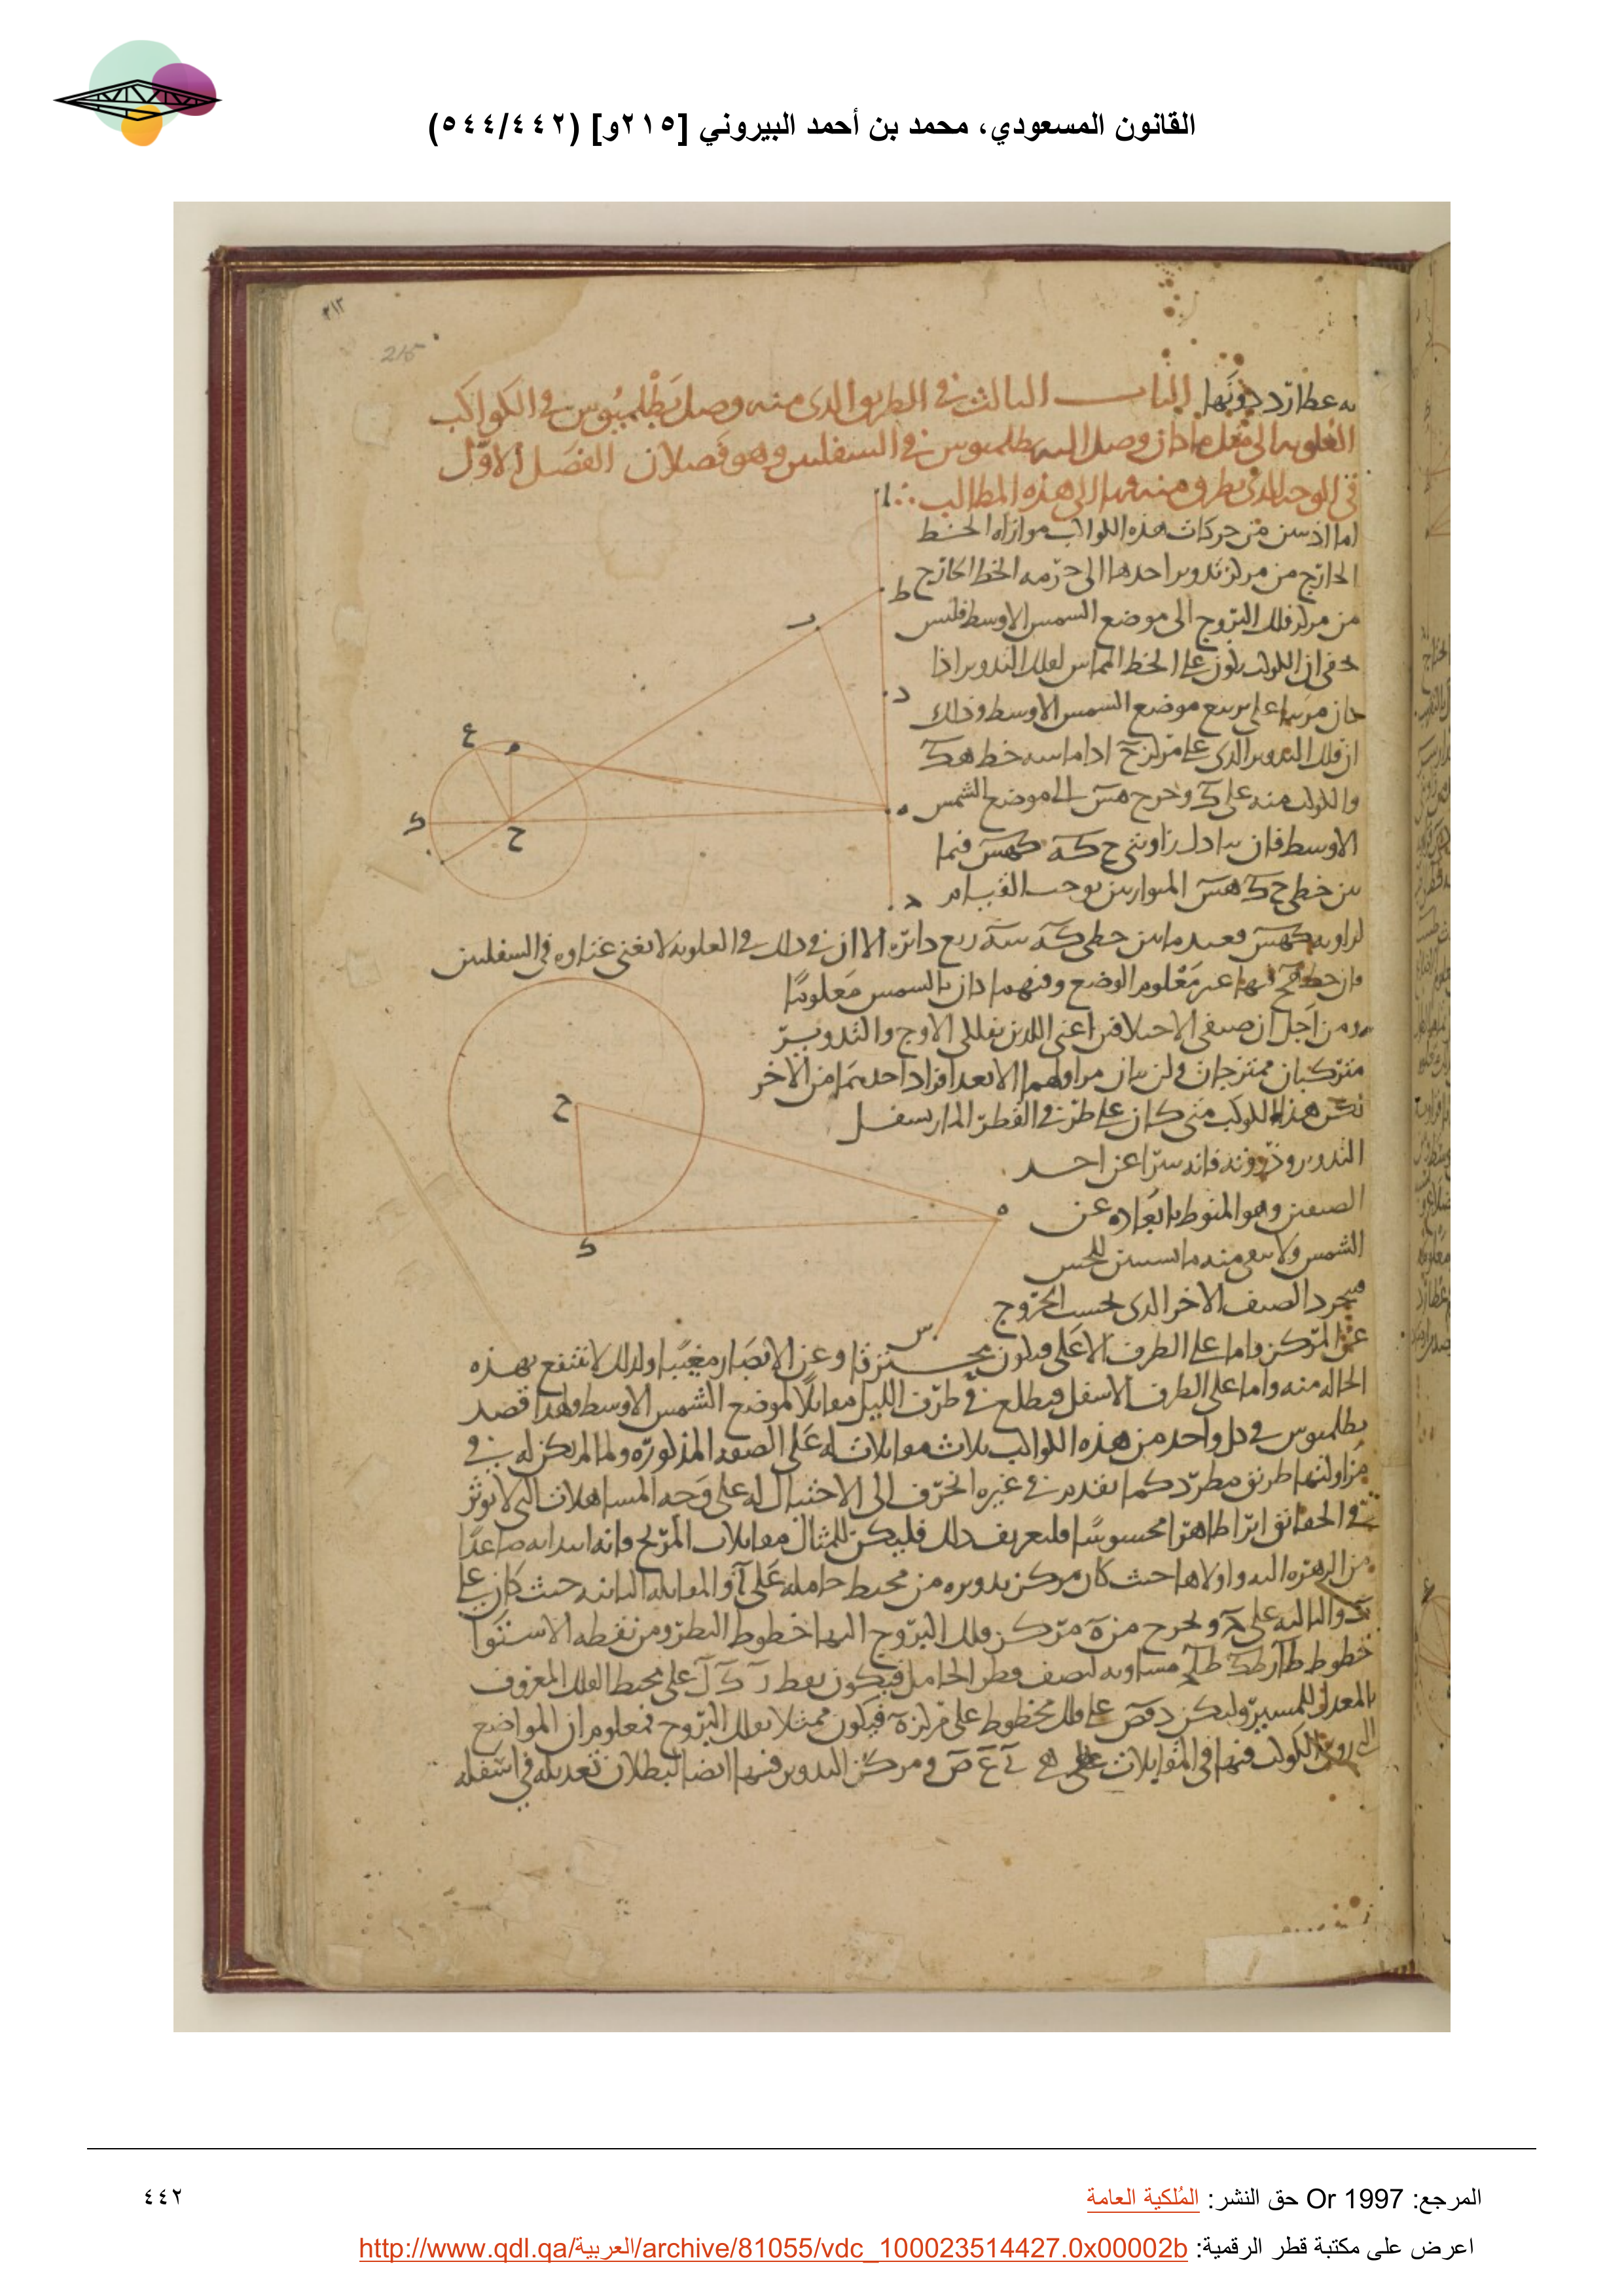 القانون المسعودي، محمد بن أحمد البيروني [٢١٥و] (٥٤٤/٤٤٢)
٢١٢
215
به عطارد دونها الباب الثالث في الطريق الذي منه وصل بطلميوس في الكواكب
العلويه الى مثل ما كان وصل اليه بطلميوس في السفليين وهو فصلان الفصل الاول
في الوجه الذي يطرق منه فيها الى هذه المطالب
اما اذ تبين من حركات هذه الكواكب موازاه الخط
الخارج من مركز تدوير احدها الى جرمه الخط الخارج
من مركز فلك البروج الى موضع الشمس الاوسط فليس
يخفى ان الكوكب يكون على الخط المماس لفلك التدوير اذا
كان مرئيا على تربيع موضع الشمس الاوسط وذلك
ان فلك التدوير الذي على مركز ح اذا ماسه خط هك
والكوكب منه على ك وخرج هس الى موضع الشمس
الاوسط فان تبادل زاويتي ح كه كهس فيما
بين خطي ح ك هس المتوازيين يوجب القيام
لزاويه كهس فبعد ما بين خطي كه سه ربع دائره الا ان ذلك في العلويه لا يغني غناوه في السفليين
فان خط هح فيها غير معلوم الوضع وفيهما كان بالشمس معلوما
ومن اجل ان صنفي الاختلافين اعني اللذين بفلكي الاوج والتدوير
متركبان ممتزجان ولن يبان من اولهما الا بعد افراد احدهما من الاخر
لكن هذا الكوكب متى كان على طرفي القطر المار بسفل
التدوير وذروته فانه يتبرا عن احد
الصنفين وهو المنوط بابعاده عن
الشمس ولا يبقى منه ما يستبين للحس
فيتجرد الصنف الاخر الذي بحسب الخروج
عن المركز فاما على الطرف الاعلى فيكون محترقا وعن الابصار مغيبا ولذلك لا ننتفع بهذه
الحاله منه واما على الطرف الاسفل فيطلع في طرف الليل مقابلا لموضع الشمس الاوسط ولهذا قصد
بطلميوس في كل واحد من هذه الكواكب ثلاث مقابلات له على الصفه المذكوره ولما لم يكن له في
مزاولتها طريق مطرد كما تقدم في غيره انحرف الى الاحتيال له على وجه المساهلات التي لا توثر
في الحقائق اثرا ظاهرا محسوسا ولتعريف ذلك فليكن للمثال مقابلات المريخ فانه ابتدا به صاعدا
من الزهره اليه واولاها حيث كان مركز تدويره من محيط حامله على آ والمقابله الثانيه حيث كان على
ب والثالثه على ج ونخرج من ه مركز فلك البروج اليها خطوط النظر ومن نقطه الاستوا
خطوط مساويه لنصف قطر الحامل فيكون نقط ر ك ل على محيط الفلك المعروف
بالمعدل للمسير وليكن على فلك مخطوط على مركز ه فيكون ممثلا بفلك البروج فمعلوم ان المواضع
الكوكب فيها في المقابلات على ومركز التدوير فيها ايضا لبطلان تعديله في اسفله
ط
د
ه
ع
م
ح
ك
ح
ه
ك
س
المرجع: Or 1997 حق النشر: المُلكية العامة
٤٤٢
اعرض على مكتبة قطر الرقمية: http://www.qdl.qa/العربية/archive/81055/vdc_100023514427.0x00002b